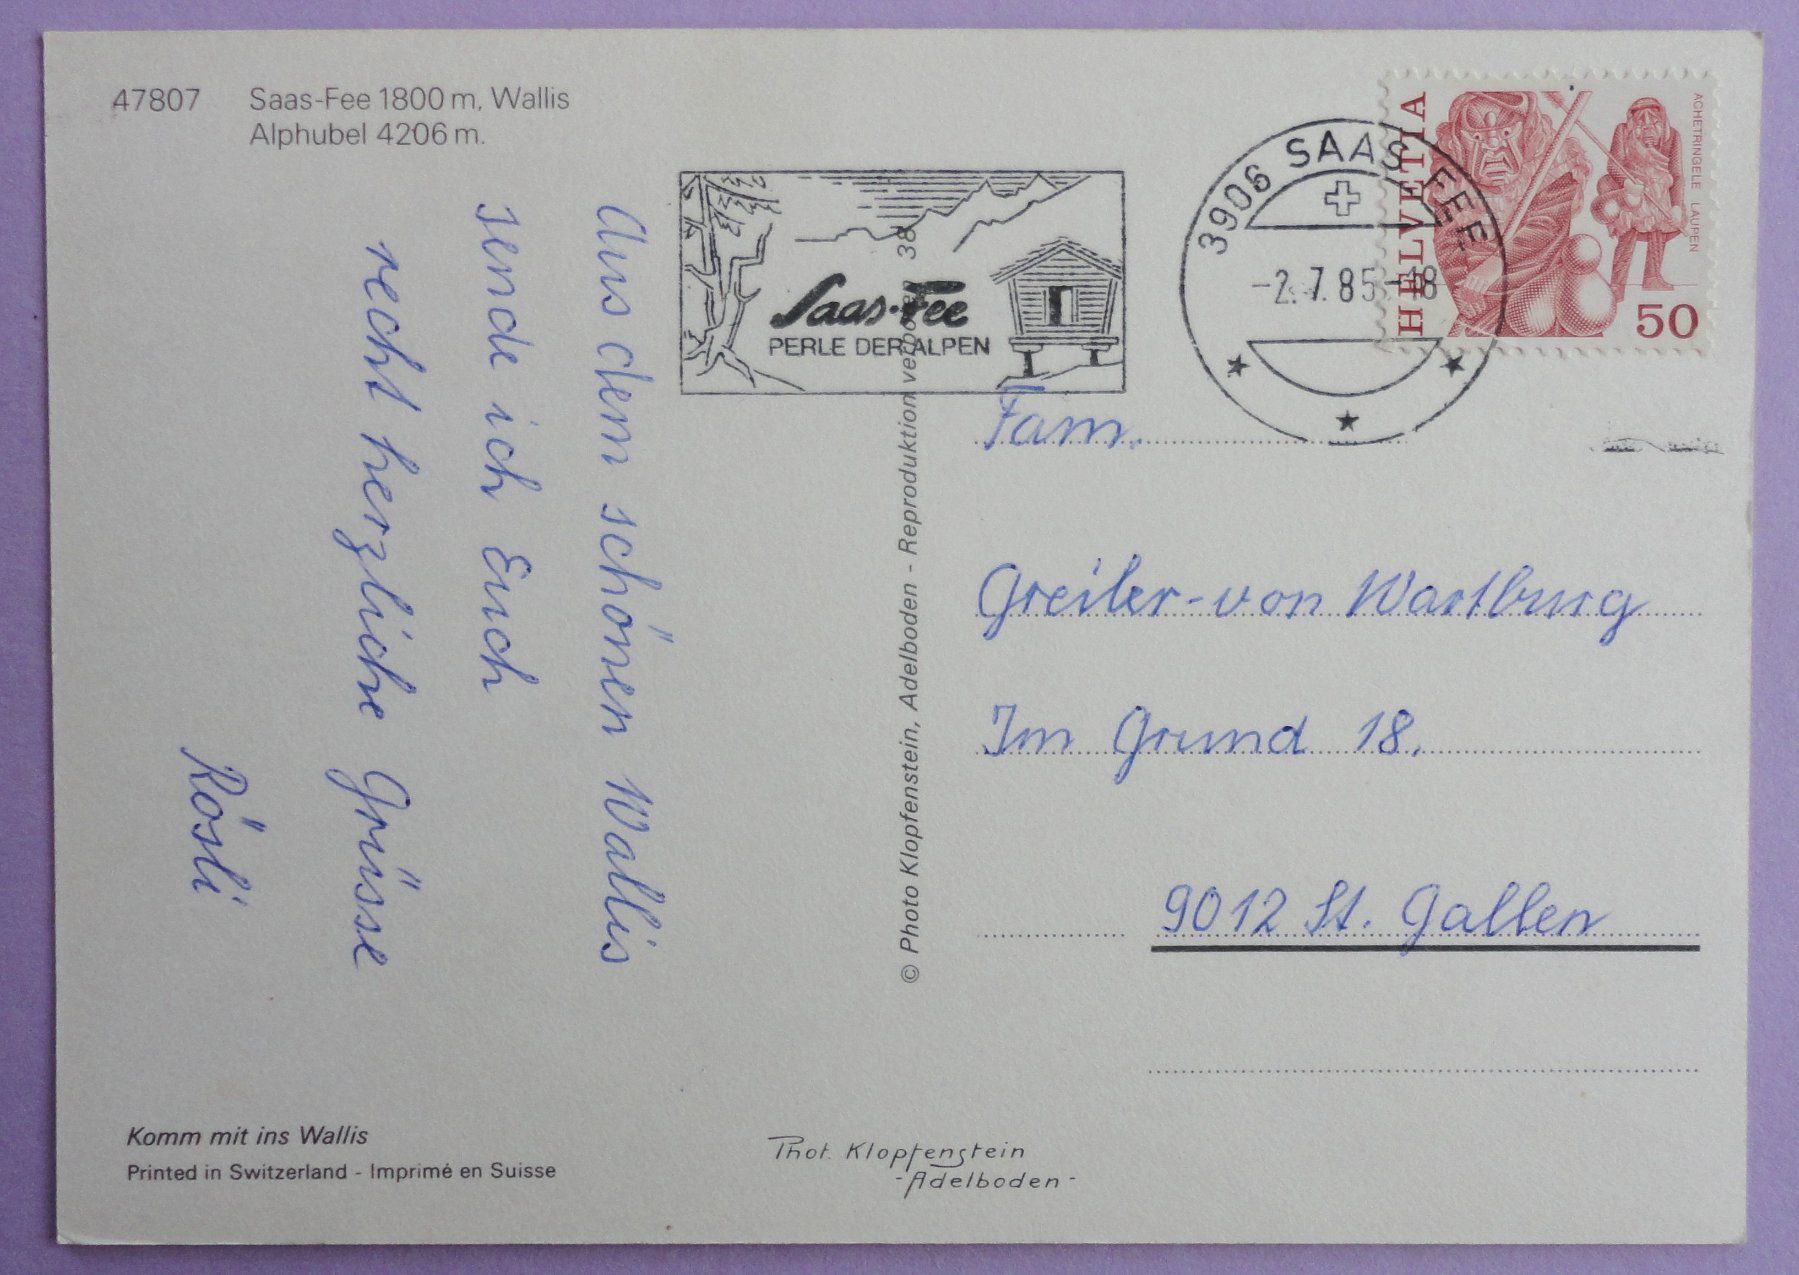 47807 Saas-Fee 1800 m, Wallis
Alphubel 4206 m.
Aus dem schönen Wallis
sende ich Euch
recht herzliche Grüsse
Rösli
Saas-Fee
PERLE DER ALPEN
3906 SAAS-FEE
-2.7.85-18
HELVETIA
ACHETRINGELE LAUPEN
50
Fam.
Greiler-von Wartburg
Im Grund 18.
9012 St. Gallen
© Photo Klopfenstein, Adelboden - Reproduktion verboten 38
Komm mit ins Wallis
Printed in Switzerland - Imprimé en Suisse
Phot. Klopfenstein
-Adelboden-